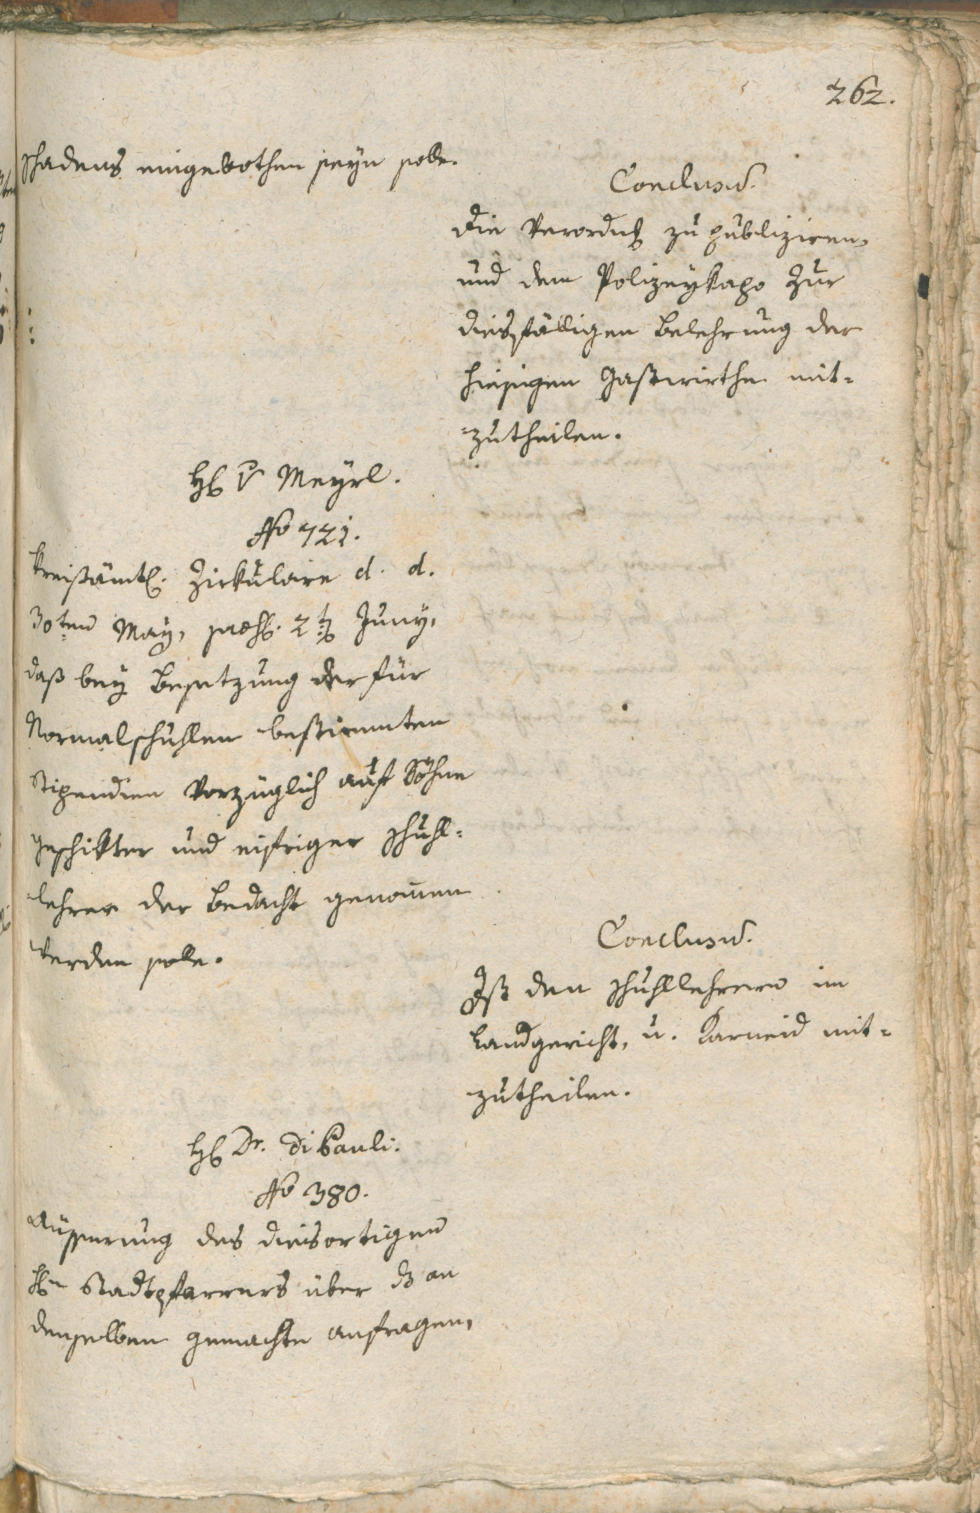 262.
Schadens eingebothen seyn solle.
Conclusũ.
Die Verordng zu publiziren,
und dem Polizeykapo Zur
diesfälligen Belehrung der
hiesigen Gastwirthe mit-
-zutheilen.
H. v Meyrl.
No 721.
Kreisämtl. Zirkulare d. d.
30ten May, 2t Juny,
daß bey Besetzung der für
Normalschuhlen bestimmten
Stipendien Vorzüglich auf Söhne
geschikter und eifriger Schuhl-
lehrer der Bedacht genom̄en
werden solle.
Conclusũ.
Ist den Schuhllehrern im
Landgericht, u. Karneid mit-
zutheilen.
H. Dr. Di Pauli.
No 380.
Äusserung des diesortigen
Hn Stadtpfarrers über die an
denselben gemachte Anfragen,